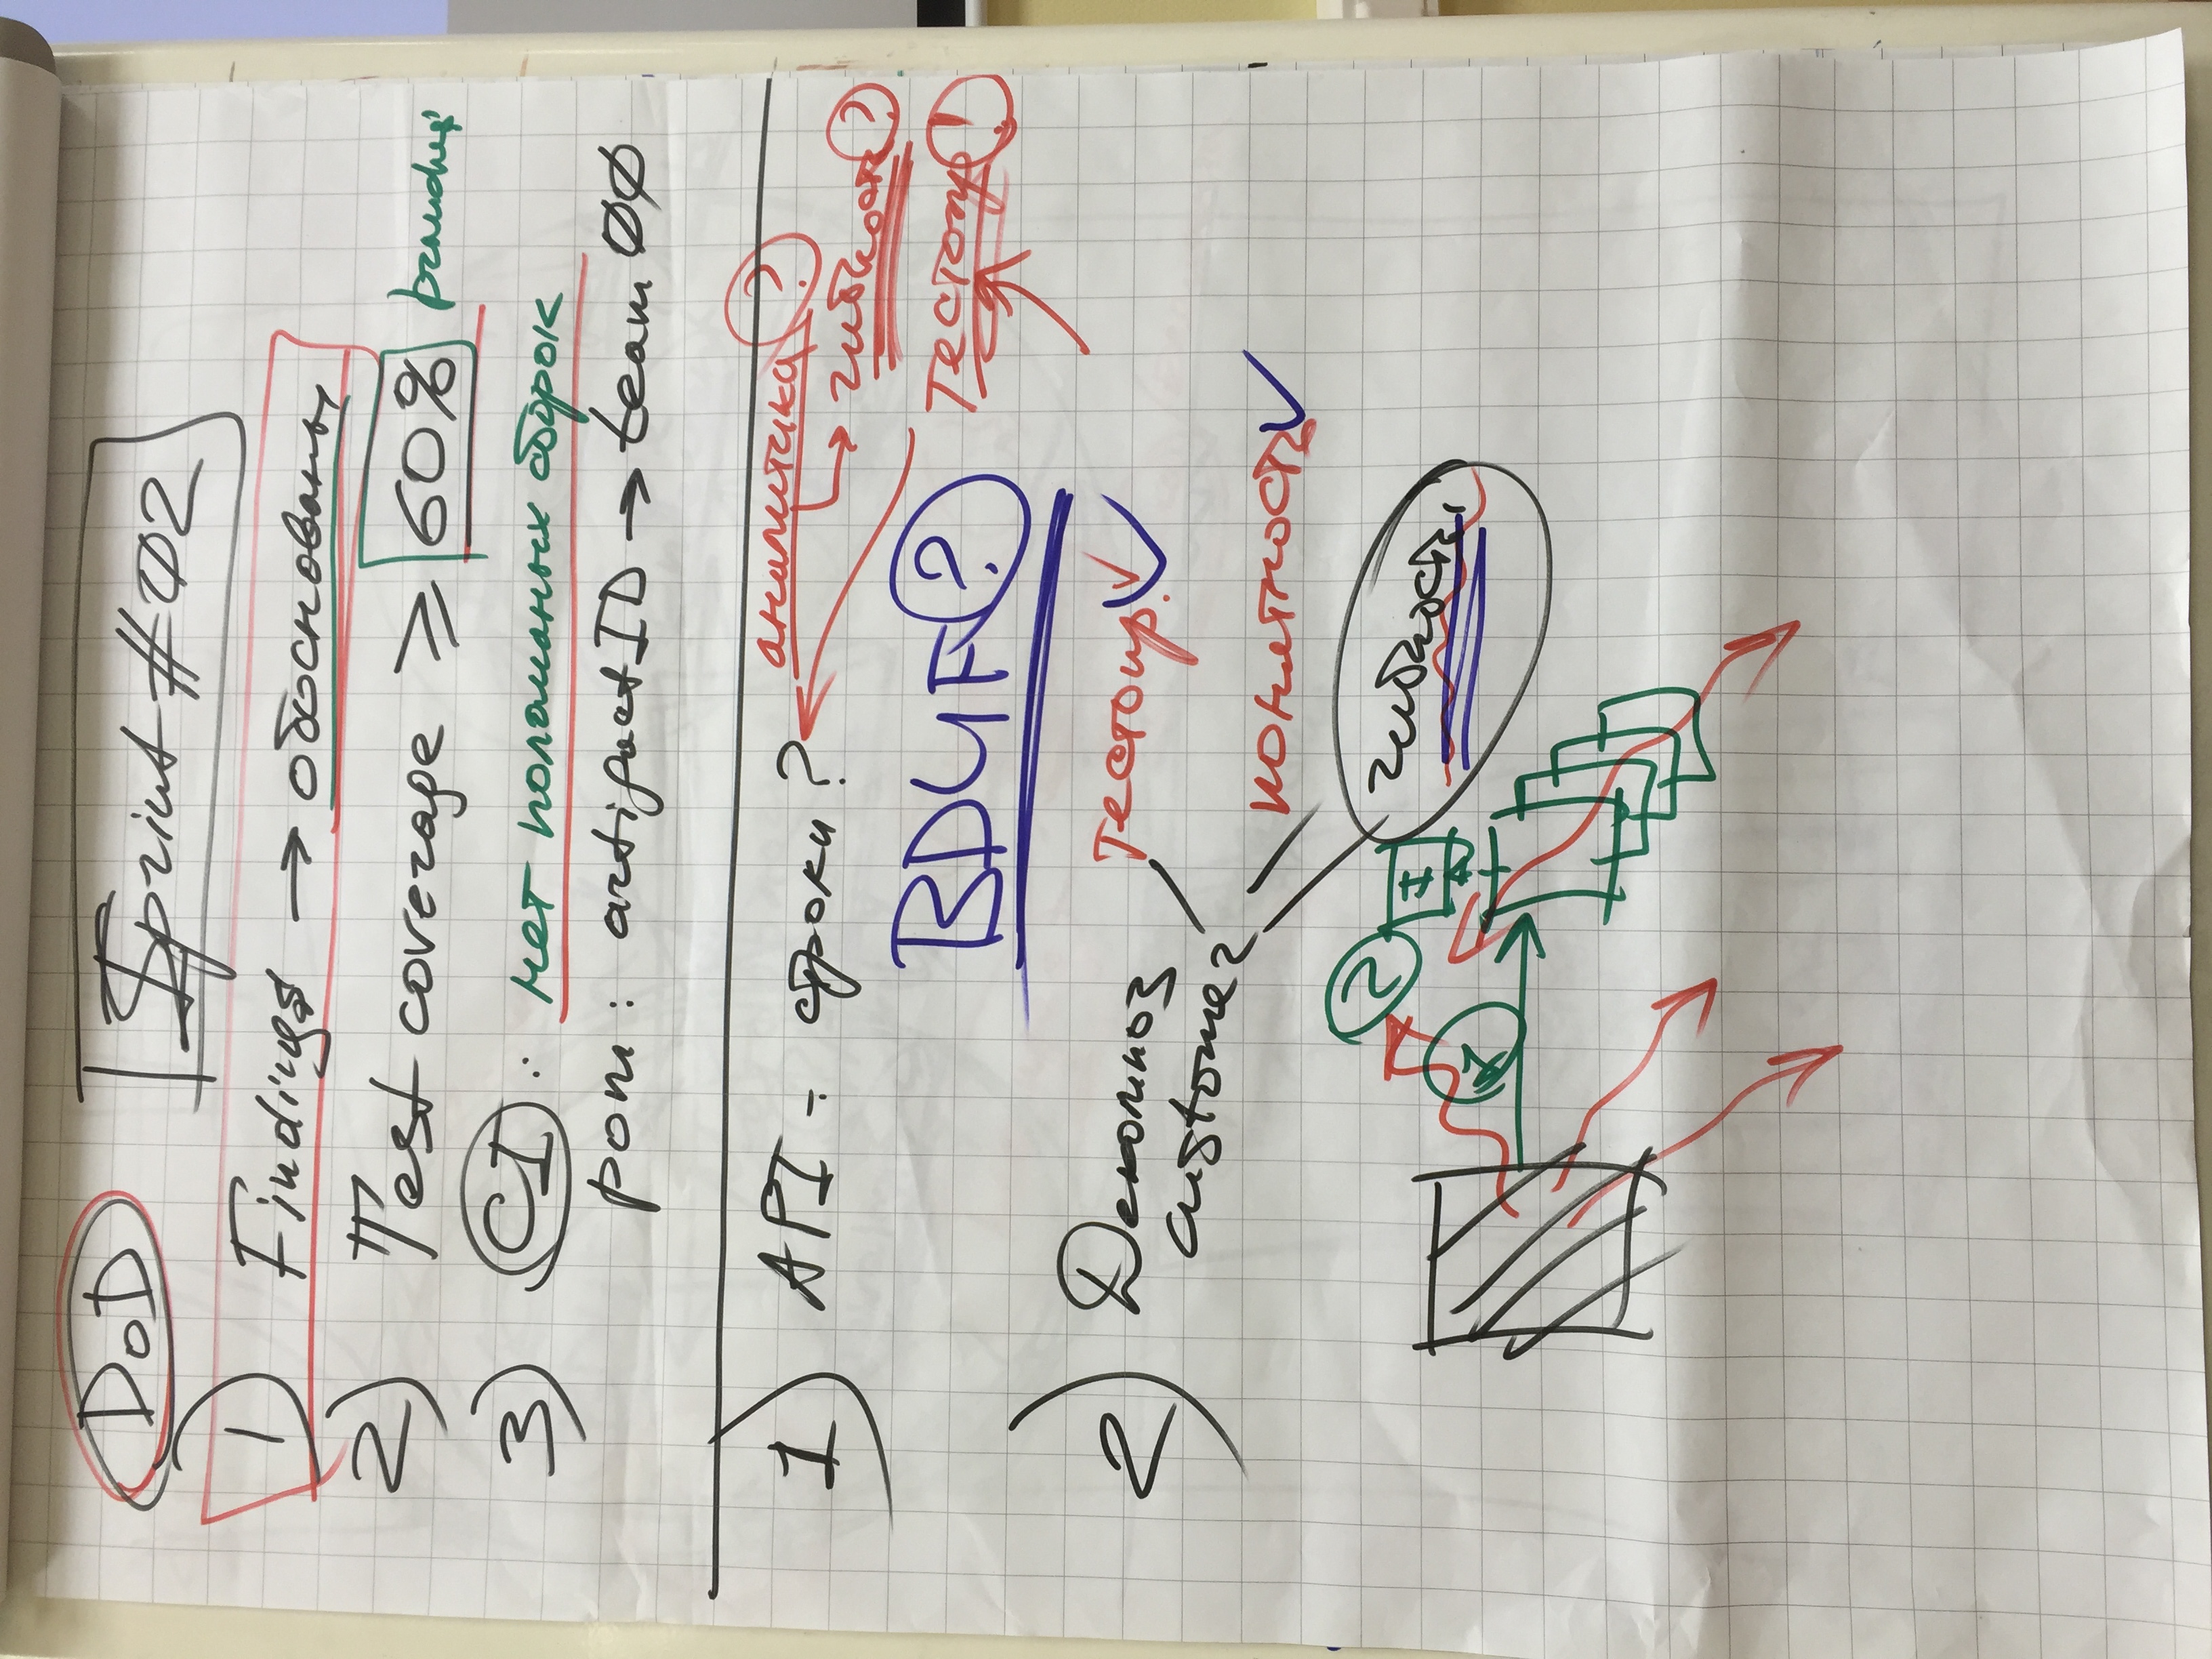 DoD
Sprint #02
1) Findings → обоснованы
2) Test coverage ≥ 60% branches
3) CI : нет поломаных сборок
pom : artifactID → team 00
1) API - строки ?
аналитика ?
гибкость ?
BDUF ?
тестопр !
2) Декомпоз
customer
тестопр.
понятность
гибкость
2